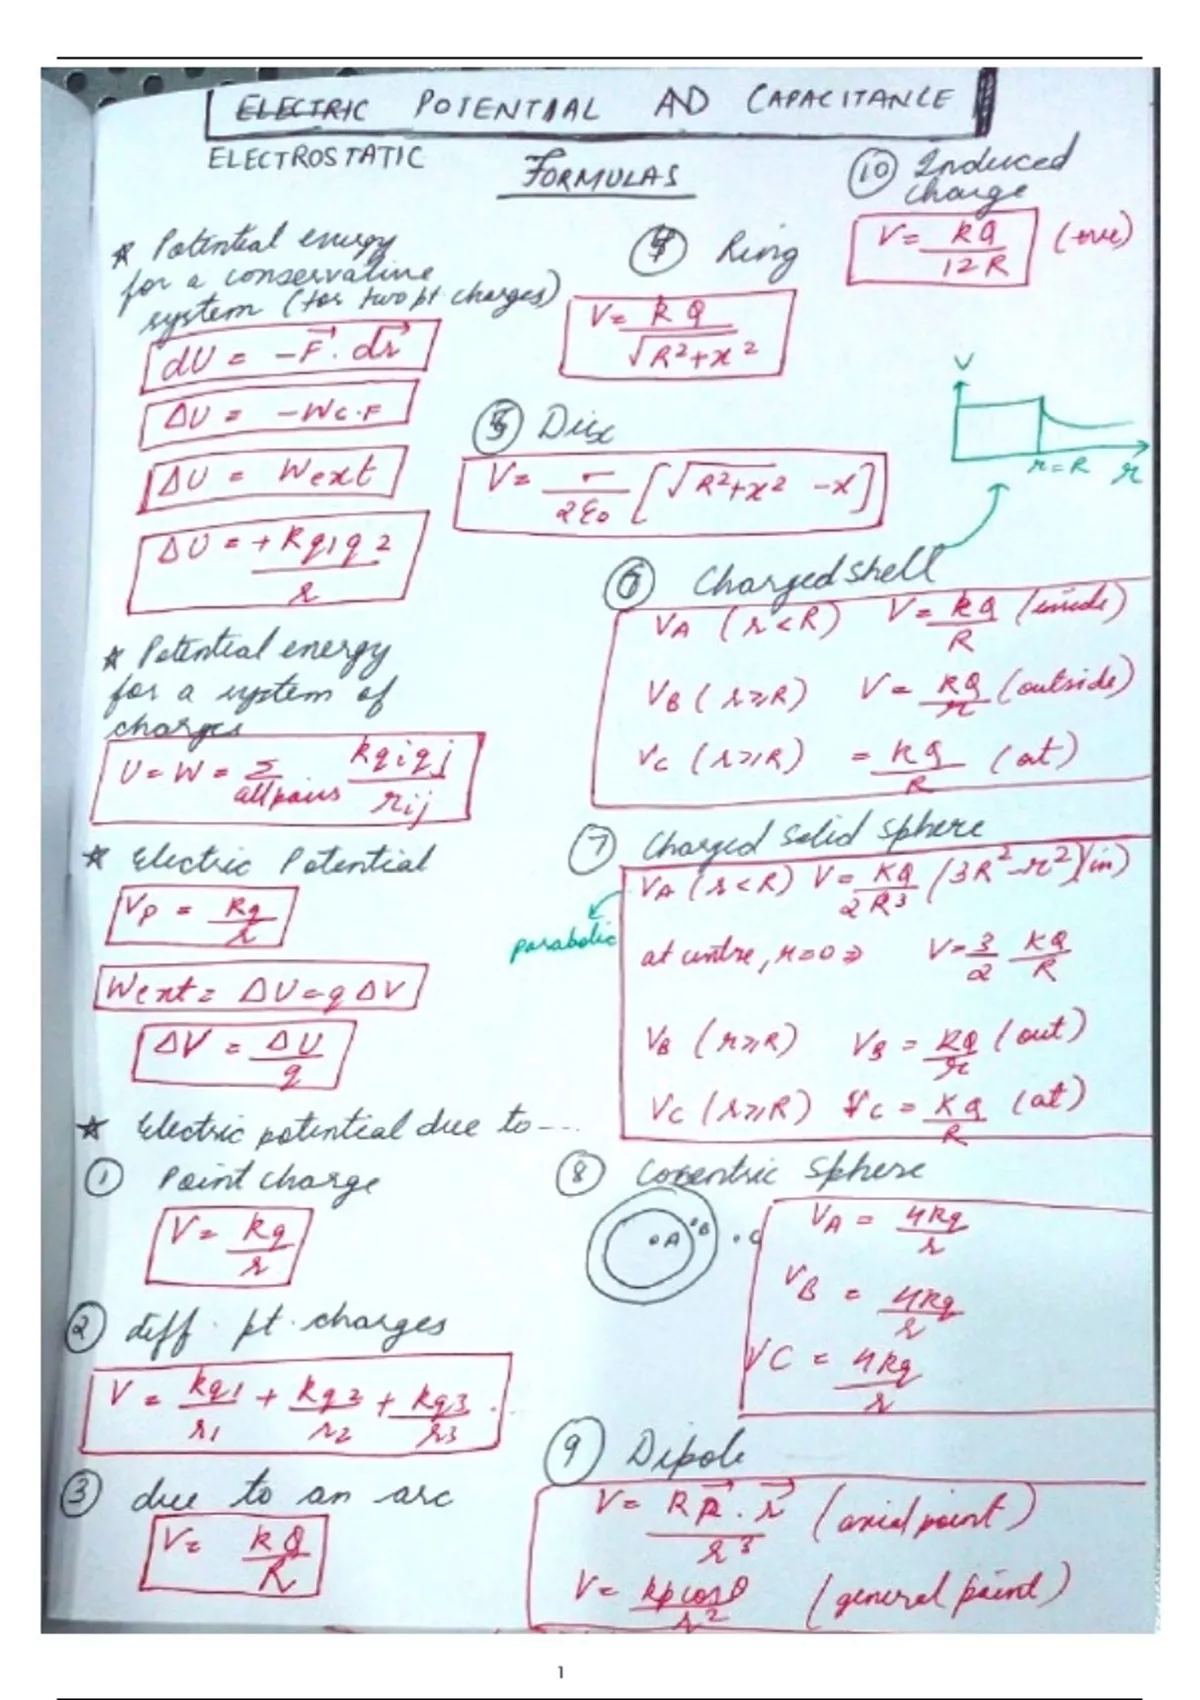 ELECTRIC POTENTIAL AND CAPACITANCE
ELECTROSTATIC
FORMULAS
* Potential energy
for a conservative
system (for two pt charges)
dU = -F⃗ . dr⃗
ΔU = -Wc.F
ΔU = Wext
ΔU = + Kq1q2 / r
* Potential energy
for a system of
charges
U = W = Σ kqiqj / rij
all pairs
* Electric Potential
Vp = Kq / r
Wext = ΔU = qΔV
ΔV = ΔU / q
* Electric potential due to ---
① Point charge
V = kq / r
② diff. pt. charges
V = kq1 / r1 + kq2 / r2 + kq3 / r3 ...
③ due to an arc
V = KQ / R
④ Ring
V = KQ / √R²+x²
⑤ Disc
V = σ / 2ε0 [√R²+x² - x]
⑥ Charged shell
VA (r<R) V = KQ / R (inside)
VB (r≥R) V = KQ / r (outside)
VC (r≥R) = KQ / R (at)
⑦ Charged solid sphere
VA (r<R) V = KQ / 2R³ (3R²-r²)(in)
parabolic
at centre, r=0 ⇒ V = 3/2 KQ / R
VB (r≥R) VB = KQ / r (out)
VC (r≥R) VC = KQ / R (at)
⑧ Concentric Sphere
A B C
VA = 4Kq / r
VB = 4Kq / r
VC = 4Kq / r
⑨ Dipole
V = K p⃗ . r⃗ / r³ (axial point)
V = kpcosθ / r² (general point)
⑩ Induced
charge
V = KQ / 12R (+ve)
V
r=R r
1